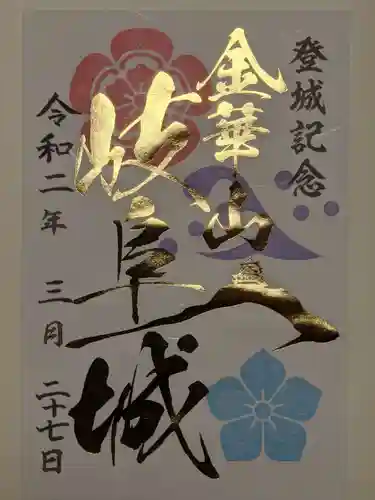 登城記念
金華山
岐阜城
令和二年 三月 二十七日